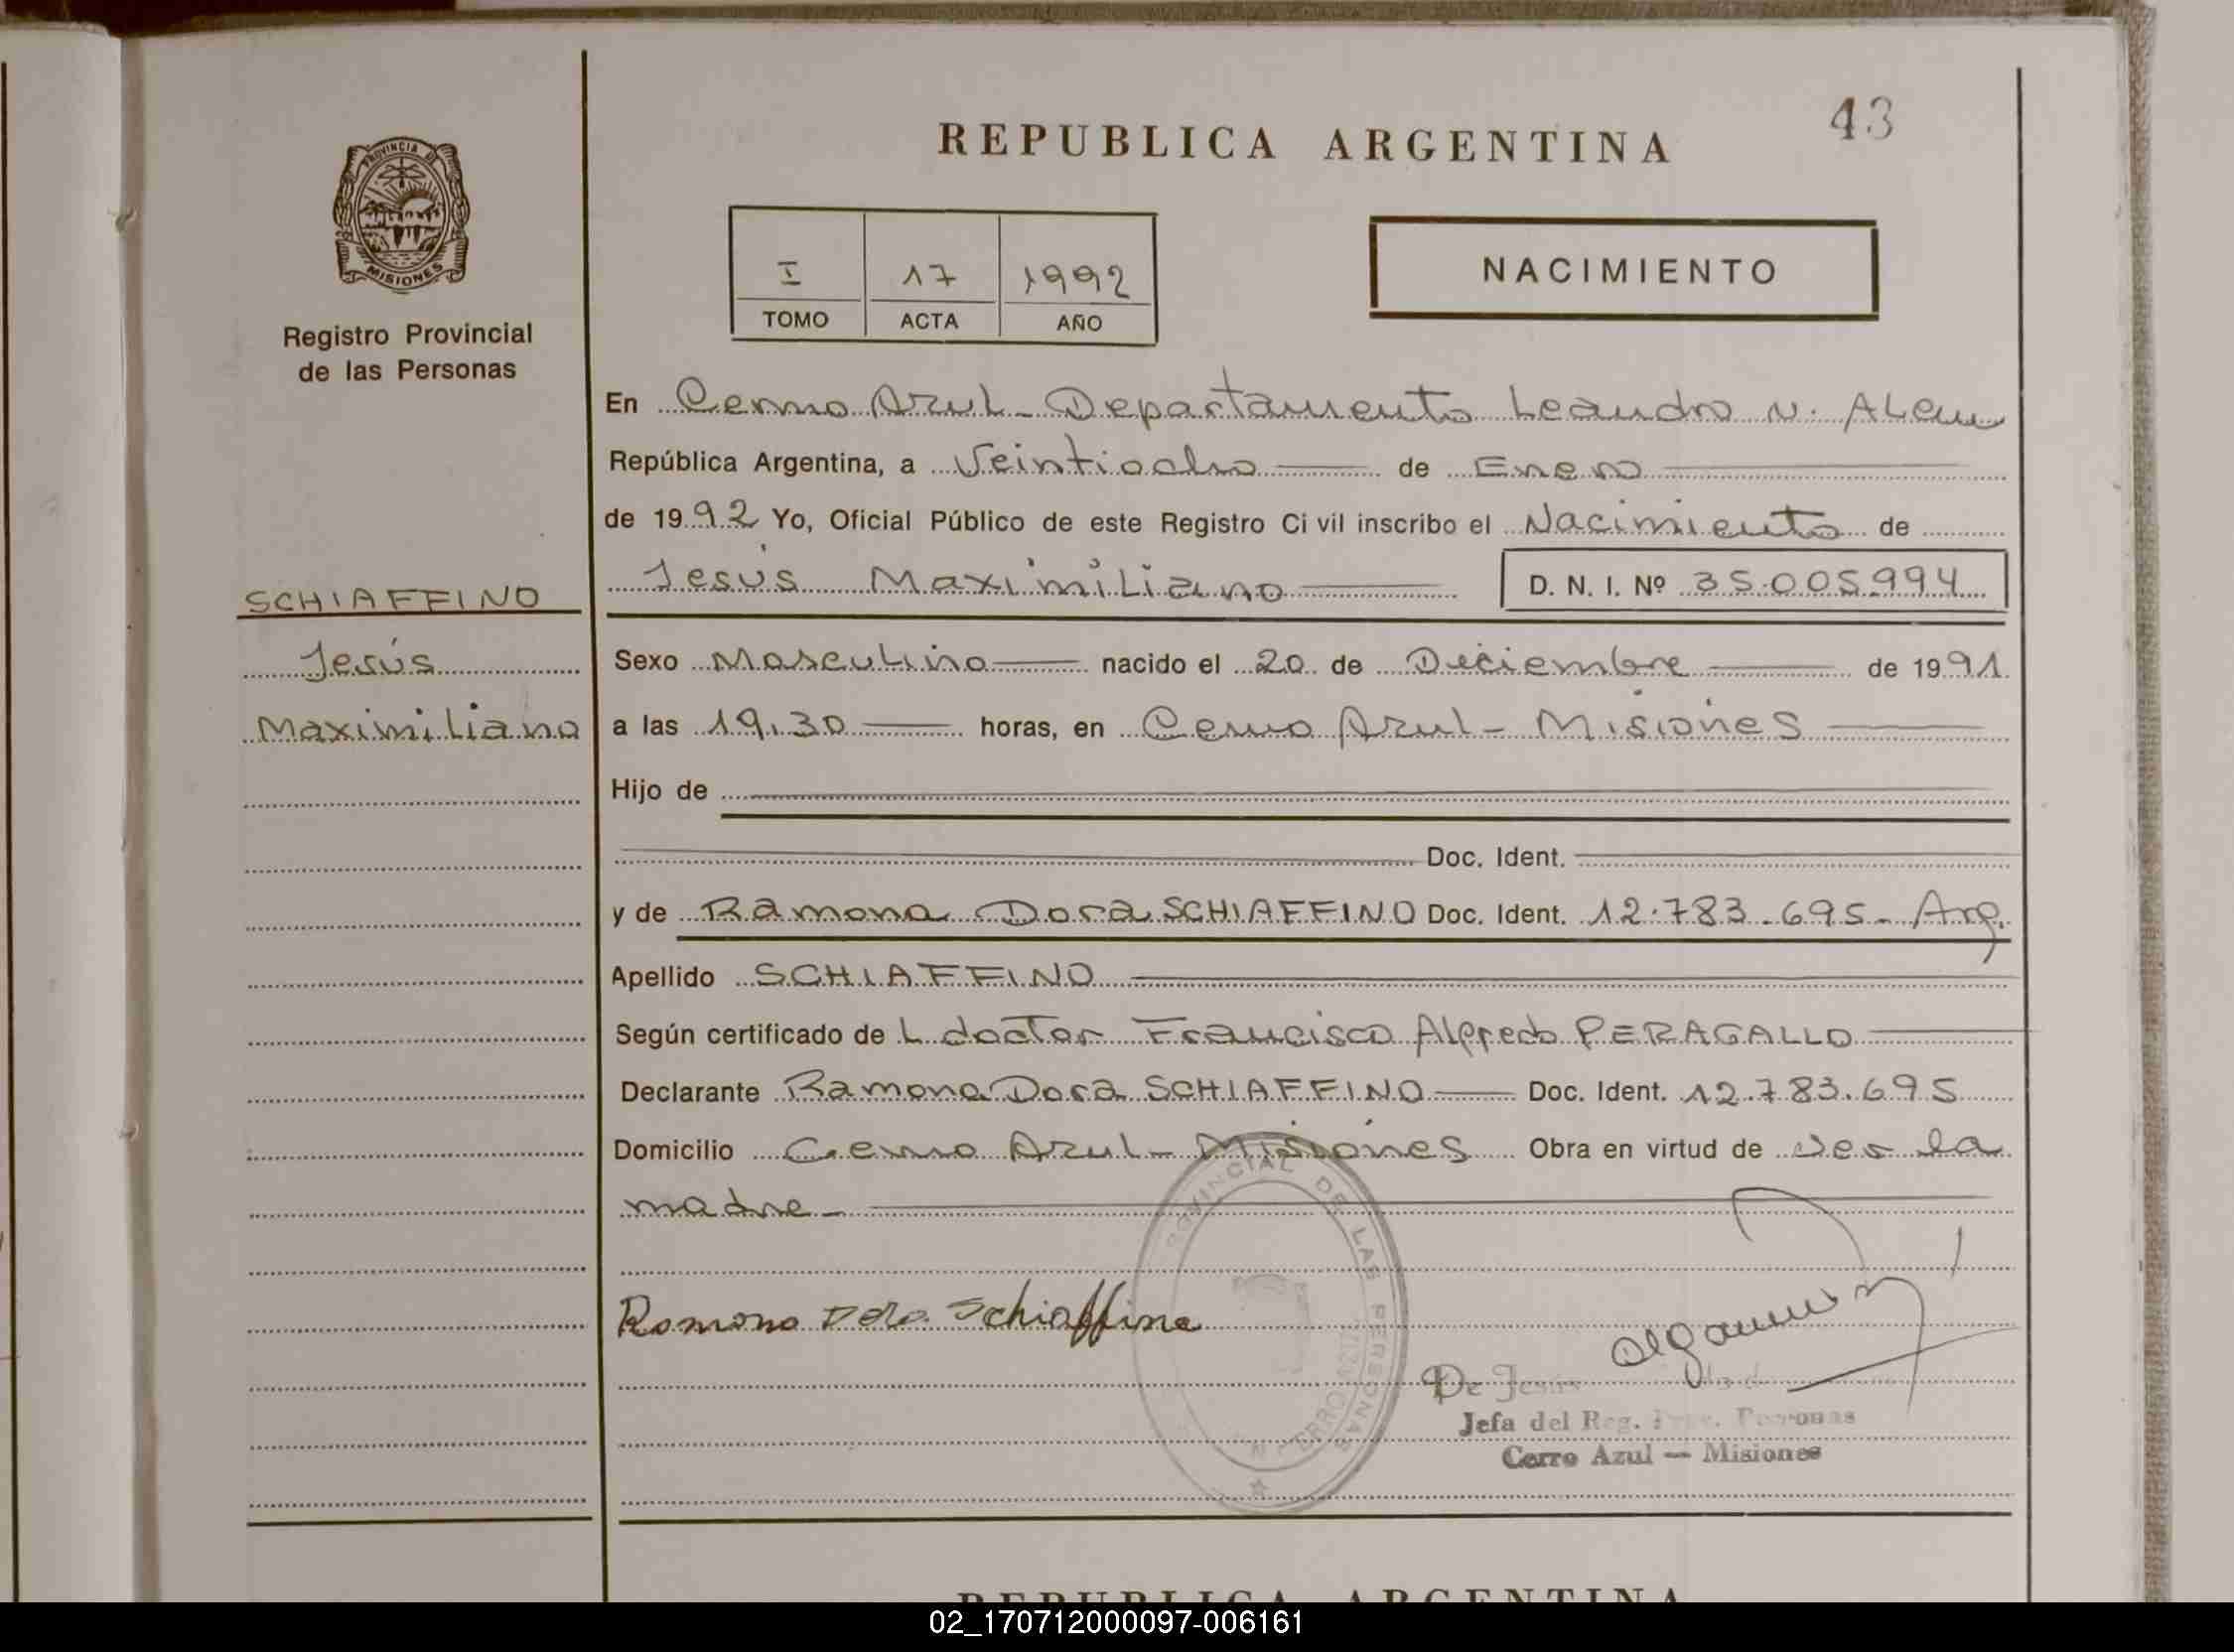 43
REPUBLICA ARGENTINA
PROVINCIA DE
MISIONES
Registro Provincial
de las Personas
I 17 1992
TOMO ACTA AÑO
NACIMIENTO
En Cerro Azul - Departamento Leandro N. Alem
República Argentina, a Veintiocho de Enero
de 1992 Yo, Oficial Público de este Registro Ci vil inscribo el Nacimiento de
Jesús Maximiliano D. N. I. Nº 35.005.994
SCHIAFFINO
Jesús
Maximiliano
Sexo Masculino nacido el 20 de Diciembre de 1991
a las 19,30 horas, en Cerro Azul - Misiones
Hijo de
Doc. Ident.
y de Ramona Dora SCHIAFFINO Doc. Ident. 12.783.695 - Arg.
Apellido SCHIAFFINO
Según certificado de L doctor Francisco Alfredo PERAGALLO
Declarante Ramona Dora SCHIAFFINO Doc. Ident. 12.783.695
Domicilio Cerro Azul - Misiones Obra en virtud de ser la
madre -
Ramona Dora Schiaffino
PROVINCIAL DE LAS PERSONAS
CERRO AZUL
De Jesús
Jefa del Reg. Prov. Personas
Cerro Azul — Misiones
REPUBLICA ARGENTINA
02_170712000097-006161